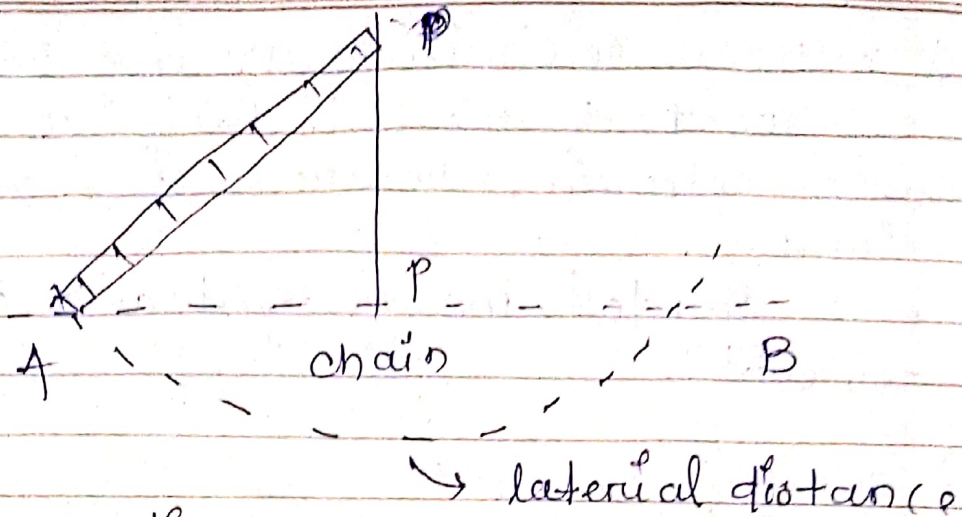 P
P
A chain B
laterial distance